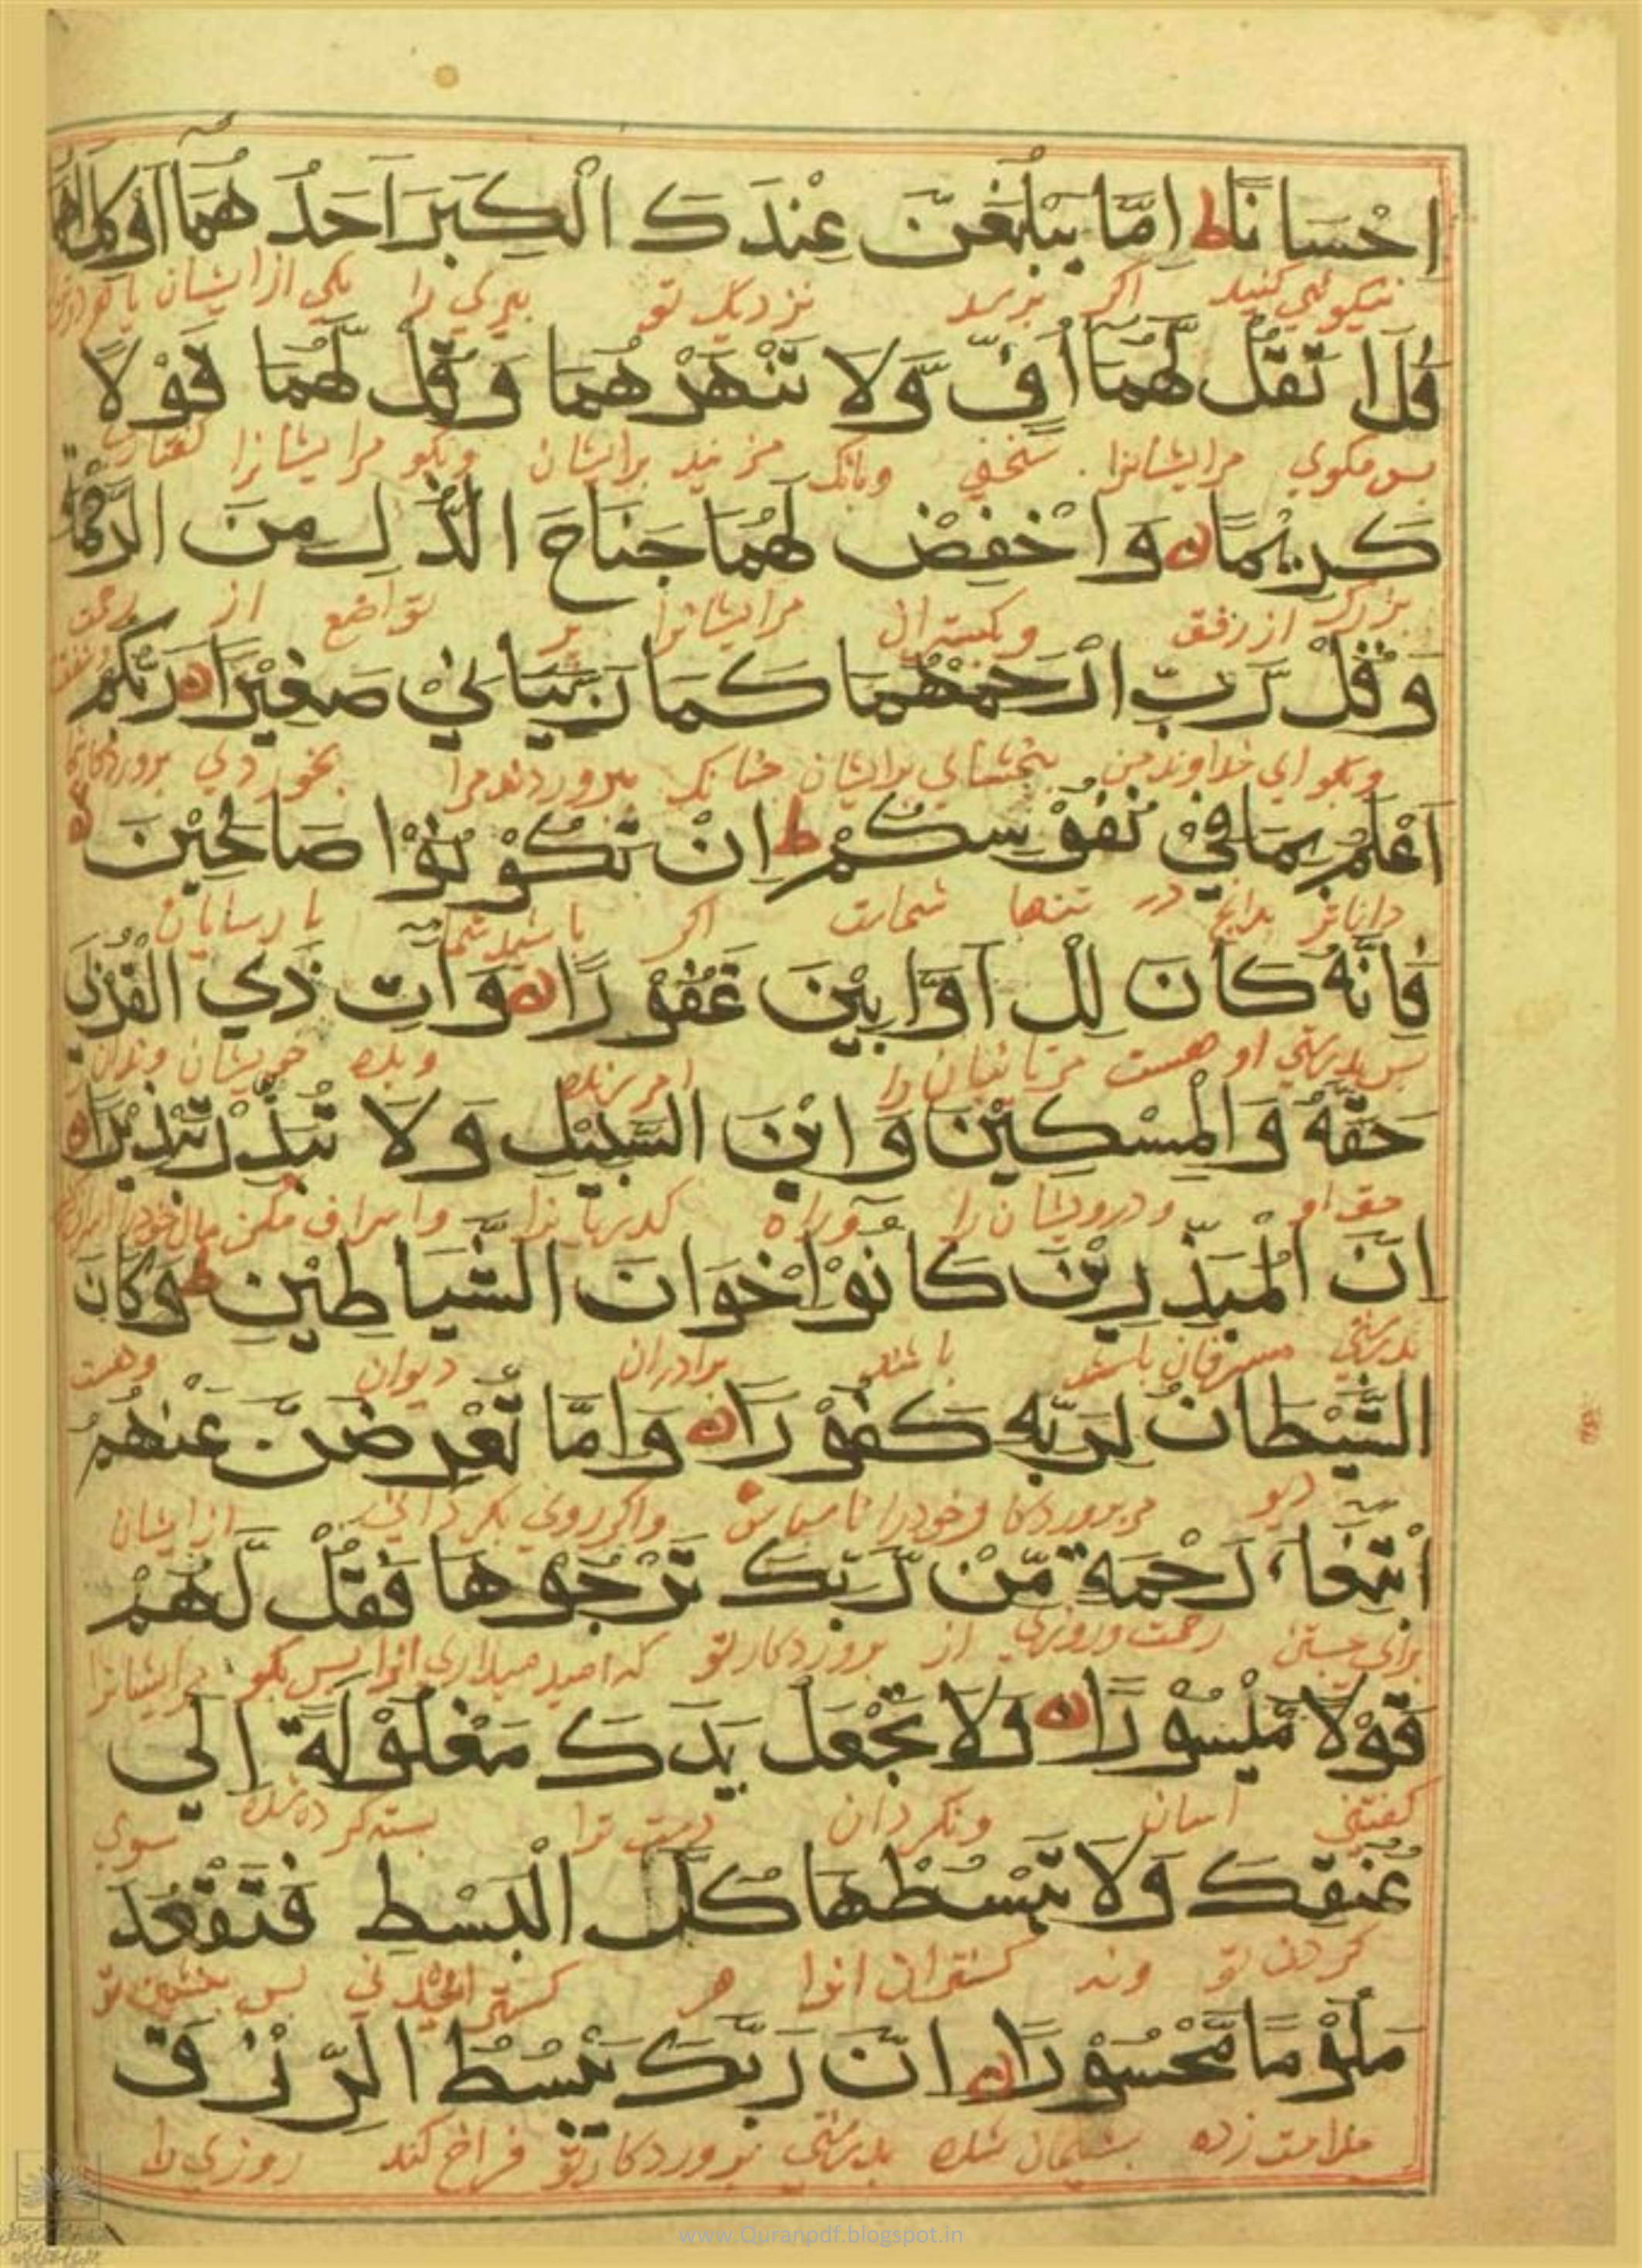 اِحْسَانًا ط اِمَّا يَبْلُغَنَّ عِنْدَكَ الْكِبَرَ اَحَدُ هُمَا آوْ كِلَاهُمَا
نیکوئی کنید اکر برسد نزدیک تو پیری را یکی از ایشان یا هر دو
فَلَا تَقُلْ لَّهُمَا اُفٍّ وَّلَا تَنْهَرْ هُمَا وَقُلْ لَّهُمَا قَوْلًا
پس مکوی مرایشانرا سختی وبانک مزنید برایشان وبکو مرایشانرا کفتاری
كَرِيْمًا وَاخْفِضْ لَهُمَا جَنَاحَ الذُّلِّ مِنَ الرَّحْمَةِ
بزرک از رفق وبکستران مرایشانرا پر تواضع از رحمت
وَقُلْ رَّبِّ ارْحَمْهُمَا كَمَا رَبَّيَانِيْ صَغِيْرًا رَبُّكُمْ
وبکو ای خداوند من ببخشای برایشان چنانک بپروردند مرا بخوردی پروردکار
اَعْلَمُ بِمَا فِيْ نُفُوْسِكُمْ ط اِنْ تَكُوْنُوْا صَالِحِيْنَ
داناتر بدانچ در تنها شماست اکر باشید شما پارسایان
فَاِنَّهُ كَانَ لِلْاَوَّابِيْنَ غَفُوْرًا وَآتِ ذَي الْقُرْبٰى
پس بدرستی او هست مرتائبان را امرزنده وبده خویشان
حَقَّهُ وَالْمِسْكِيْنَ وَابْنَ السَّبِيْلِ وَلَا تُبَذِّرْ تَبْذِيْرًا
حق او ودرویشان را وراه کذریانرا واسراف مکن مال خودرا
اِنَّ الْمُبَذِّرِيْنَ كَانُوْا اِخْوَانَ الشَّيَاطِيْنِ ط وَكَانَ
بدرستی مسرفان باشند برادران دیوان وهست
الشَّيْطَانُ لِرَبِّهِ كَفُوْرًا وَاِمَّا تُعْرِضَنَّ عَنْهُمُ
دیو مر پروردکار خودرا ناسپاس واکر روی بکردانی از ایشان
ابْتِغَاءَ رَحْمَةٍ مِّنْ رَّبِّكَ تَرْجُوْهَا فَقُلْ لَّهُمْ
برای جستن رحمت وروزی از پروردکار تو که امید میداری انرا پس بکو مرایشانرا
قَوْلًا مَّيْسُوْرًا وَلَا تَجْعَلْ يَدَكَ مَغْلُوْلَةً اِلٰي
کفتنی اسان ونکردان دست ترا بسته کرده شده سوی
عُنُقِكَ وَلَا تَبْسُطْهَا كُلَّ الْبَسْطِ فَتَقْعُدَ
کردن تو ونه کستران انرا هر پس بنشینی تو
مَلُوْمًا مَّحْسُوْرًا اِنَّ رَبَّكَ يَبْسُطُ الرِّزْقَ
ملامت زده پشیمان شده بدرستی پروردکار تو فراخ کند روزی را
www.Quranpdf.blogspot.in